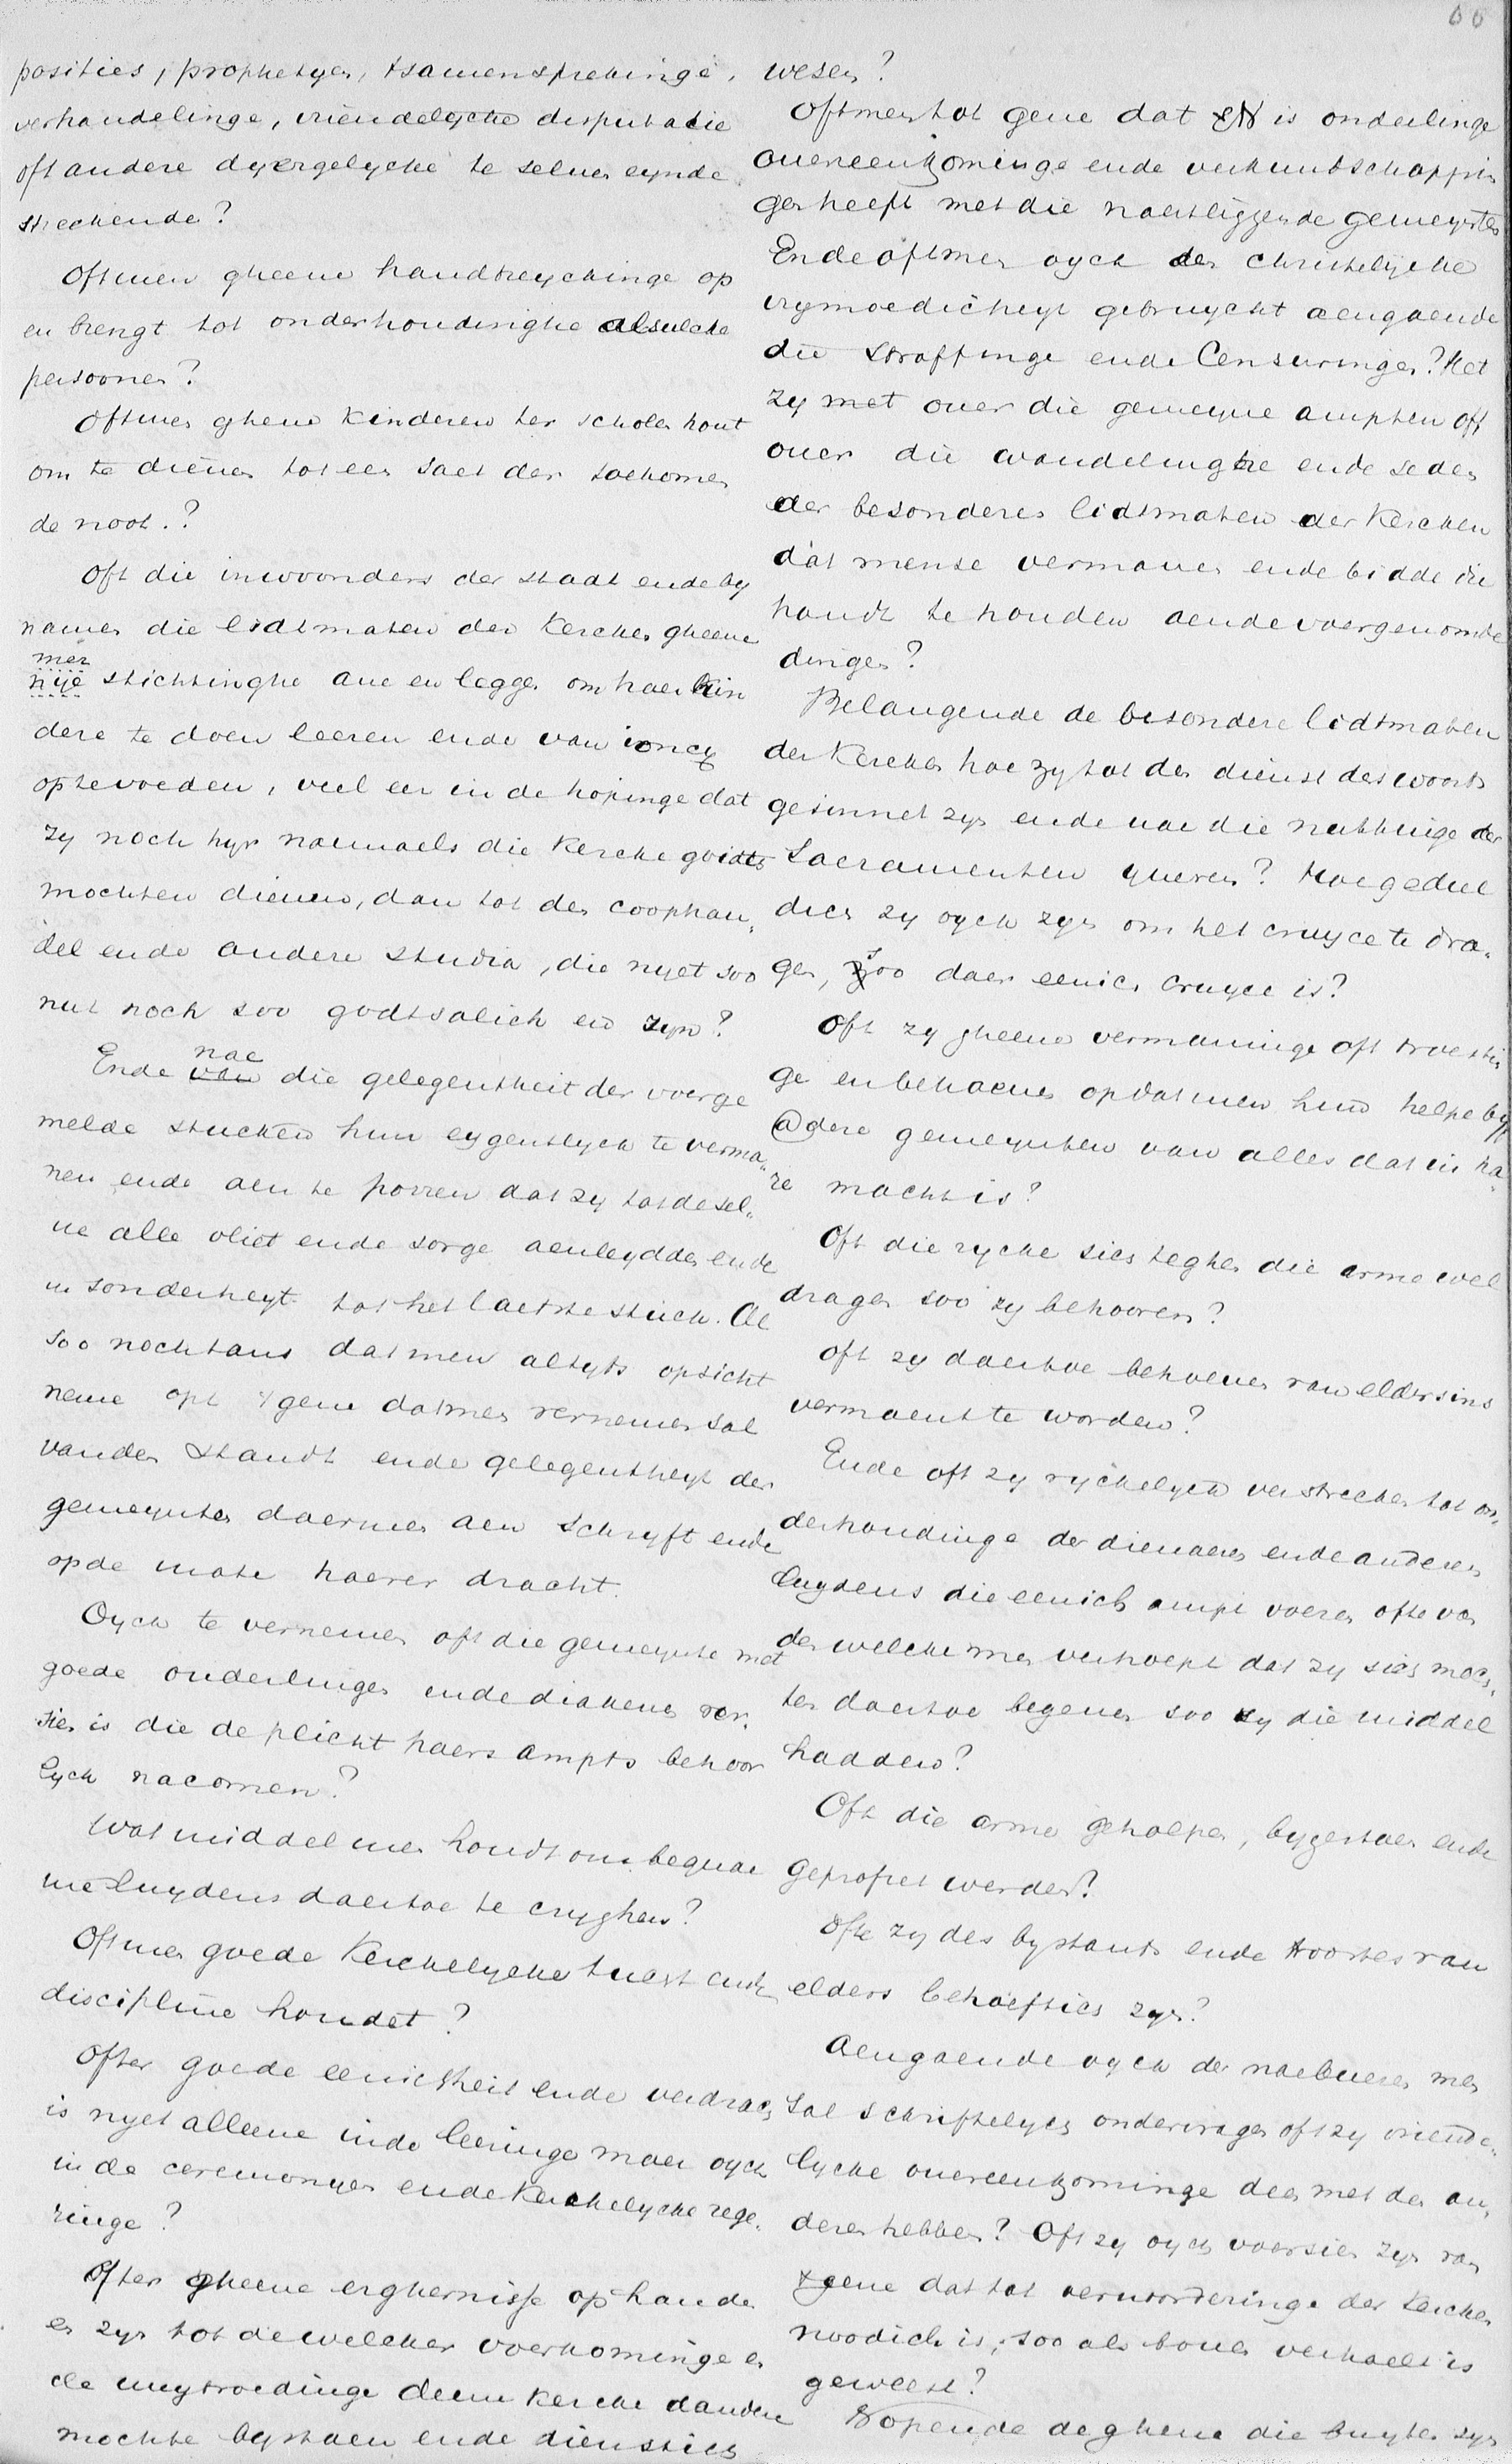 66
posities, prophetyen, tsamensprekinge,
verhandelinge, vriendelycke disputatie
oft andere dyergelycke te selven eynde
streckende?
Oftmen gheene handtreyckinge op
en brengt tot onderhoudinghe alsulcke
persoonen?
Oftmen ghene kinderen ter scholen hout
om te dienen tot een saet der toekomen
de noot.?
Oft die inwoonders der stadt ende by
namen die lidtmaten der Kercken gheene
men
nye stichtinghe ane en leggen om haer kin
dere te doen leeren ende van ioncx
optevoeden, veel eer in de hopinge dat
zy noch hyr naemaels die Kercke godts
mochten dienen, dan tot den coophan„
del ende andere studia, die nyet soo
nut noch soo godtsalich en zyn?
nae
Ende van die gelegentheit der voerge
melde stucken hun eygentlyck te verma„
nen ende aen te porren dat zy tot desel„
ve alle vliet ende sorge aenleydden ende
in sonderheyt tot het laetste stuck. Al
soo nochtans datmen altyts opsicht
neme opt tgene datmen vernemen sal
vanden standt ende gelegentheyt der
gemeynten daermen aen schryft ende
op de mate haerer dracht.
Oyck te vernemen oft die gemeynte met
goede ouderlingen ende diakenen ver„
sien is die de plicht haers ampts behoor
lyck nacomen?
Wat middel men houdt om bequa
me luydens daertoe te cryghen?
Oftmen goede Kerckelycke tucht ende
discipline houdet?
Ofter goede eenicheit ende verdrach
is nyet alleene inde leeringe maer oyck
in de ceremonyen ende Kerckelycke rege„
ringe?
Ofter gheene erghernisse op handen
en zyn tot de welcker voorkominge en
de uuytroedinge deene kercke dandere
mochte bystaen ende dienstich
wesen?
Oftmen tot gene dat is onderlinge
overeenkominge ende verkuntschappin
gen heeft met die naestliggende gemeynten
Ende oftmen oyck der christelycke
vrymoedicheyt gebruyckt aengaende
die straffinge ende Censuringen? Het
zy met over die gemeyne ampten oft
over die wandelinghe ende seden
der besonderen lidtmaten der Kercken
dat mense vermane ende bidde die
handt te houden aende voergenomde
dingen?
Belangende de besondere lidtmaten
der Kercken hoe zy tot den dienst des woorts
gesinnet zyn ende nae die nuttinge der
Sacramenten yveren? Hoe gedul
dich zy oyck zyn om het cruyce te dra„
gen, soo daer eenich cruyce is?
Oft zy gheene vermaninge oft troestin
ge en behoeven opdatmen hun helpe by
andere gemeynten van alles dat in ha„
re macht is?
Oft die rycke sich teghen die arme wel
dragen soo zy behooren?
Oft zy daertoe behoeven van eldersins
vermaent te worden?
Ende oft zy ryckelyck verstrecken tot on„
derhoudinge der dienaeren ende anderen
luydens die eenich ampt voeren ofte van
den welcken men verhoept dat zy sich moch„
ten daertoe begeven soo zy die middel
hadden?
Oft die arme geholpen, bygestaen ende
geproft werden?
Ofte zy des bystants ende troostes van
elders behoeftich zyn?
Aengaende oyck der naebueren men
sal schriftelycken ondervragen oft zy vriende„
lycke overeenkominge deen met den an„
deren hebben? Oft zy oyck voorsien zyn van
tgene dat tot vervorderinge der kercken
noodich is, soo als boven verhaelt is
geweest?
Hopende de ghene die buyten zyn